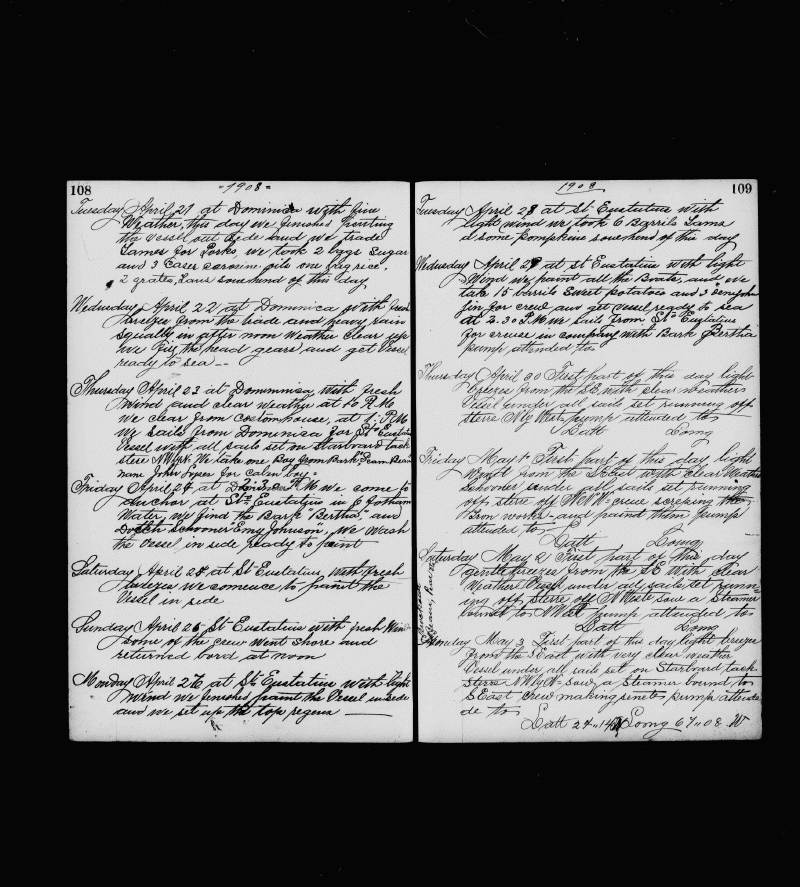 108
"1908"
Tuesday April 21 at Dominica with fine
Weather, this day we finished painting
the vessel out side and we trade
for Porks we took 2 baggs Sugar
and 3 Cases one bag rice.
2 grates, so end of this day
Wednesday April 22 at Dominica with fresh
breezes from the trade and heavy rain
squally in after noon Weather clear up
We fix the head gears and get Vessel
ready to sea
Thursday April 23 at Domminica with fresh
Wind and clear weather at 10 P.M
we clear from coustomhouse, at P.M
We Sails from Dominica for St. Eustatius
Vessel with all sails set on Starboard tack
stere NW/W. We take one Boy from Bark
name John for cabin boy
Friday April 24 at 2.30 P.M We come to
anchor at St. Eustatius in 6 fathom
Water, we find the Bark "Bertha" and
Dutch Schooner "Emy Johnson", We Wash
the Vessel in side ready to paint
Saturday April 25 at St Eustatius With fresh
breezes we comence to paint the
Vessel in side
Sunday April 26 St Eustatius with fresh Wind
some of the crew went shore and
returned bord at noon
Monday April 27 at St. Eustatius with light
wind we finshes paint the Vessel in side
and we set up the top
1908
109
Tuesday April 28 at St Eustatius with
light wind we took 6 Barrils
some Pompkins so end of this day
Wednesday April 29 at St Eustatius with light
Wind we paint all the Boats, and we
take 15 barrils Sweet potatoes and 3
for crew an get vessel ready to sea
at 2.30 P.M we Sail from St Eustatius
for cruise in company with Bark Bertha
pump attended to
Thursday April 30 First part of this day light
breezes from the SE with clear Weather
Vessel under all sails set running off
stere NW West pump attended to
Latt Long
Friday May 1 First part of this day light
Wind from the S East with clear Weather
Schooner under all sails set running
off stere off WNW crew screping the
Iron works and paint them pump
attended to
Latt Long
Saturday May 2 First part of this day
gentle breezes from the SE With Clear
Weather Vessel under all sails set runn-
ing off stere off N West Saw a Steamer
bound to N West pump attended to
Latt Long
Sunday May 3 First part of this day light breezes
from the East with very clear weather
Vessel under all sail set on Starboard tack
stere NW/W Saw a Steamer bound to
S East crew making pump attende
de to
Latt 24"14 N Long 67"08 W